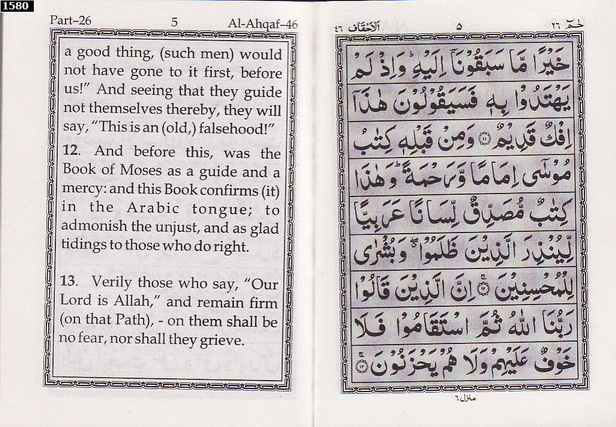 1580
Part–26 5 Al-Ahqaf–46
a good thing, (such men) would
not have gone to it first, before
us!” And seeing that they guide
not themselves thereby, they will
say, “This is an (old,) falsehood!”
12. And before this, was the
Book of Moses as a guide and a
mercy: and this Book confirms (it)
in the Arabic tongue; to
admonish the unjust, and as glad
tidings to those who do right.
13. Verily those who say, “Our
Lord is Allah,” and remain firm
(on that Path), - on them shall be
no fear, nor shall they grieve.
حٰمٓ ٢٦ ٥ الاحقاف ٤٦
خَيْرًا مَّا سَبَقُوْنَاۤ اِلَيْهِ ؕ وَاِذْ لَمْ
يَهْتَدُوْا بِهٖ فَسَيَقُوْلُوْنَ هٰذَاۤ
اِفْكٌ قَدِيْمٌ ۝١١ وَمِنْ قَبْلِهٖ كِتٰبُ
مُوْسٰۤى اِمَامًا وَّرَحْمَةً ؕ وَهٰذَا
كِتٰبٌ مُّصَدِّقٌ لِّسَانًا عَرَبِيًّا
لِّيُنْذِرَ الَّذِيْنَ ظَلَمُوْا ۖ وَبُشْرٰى
لِلْمُحْسِنِيْنَ ۝١٢ اِنَّ الَّذِيْنَ قَالُوْا
رَبُّنَا اللّٰهُ ثُمَّ اسْتَقَامُوْا فَلَا
خَوْفٌ عَلَيْهِمْ وَلَا هُمْ يَحْزَنُوْنَ ۝١٣
منزل ٦